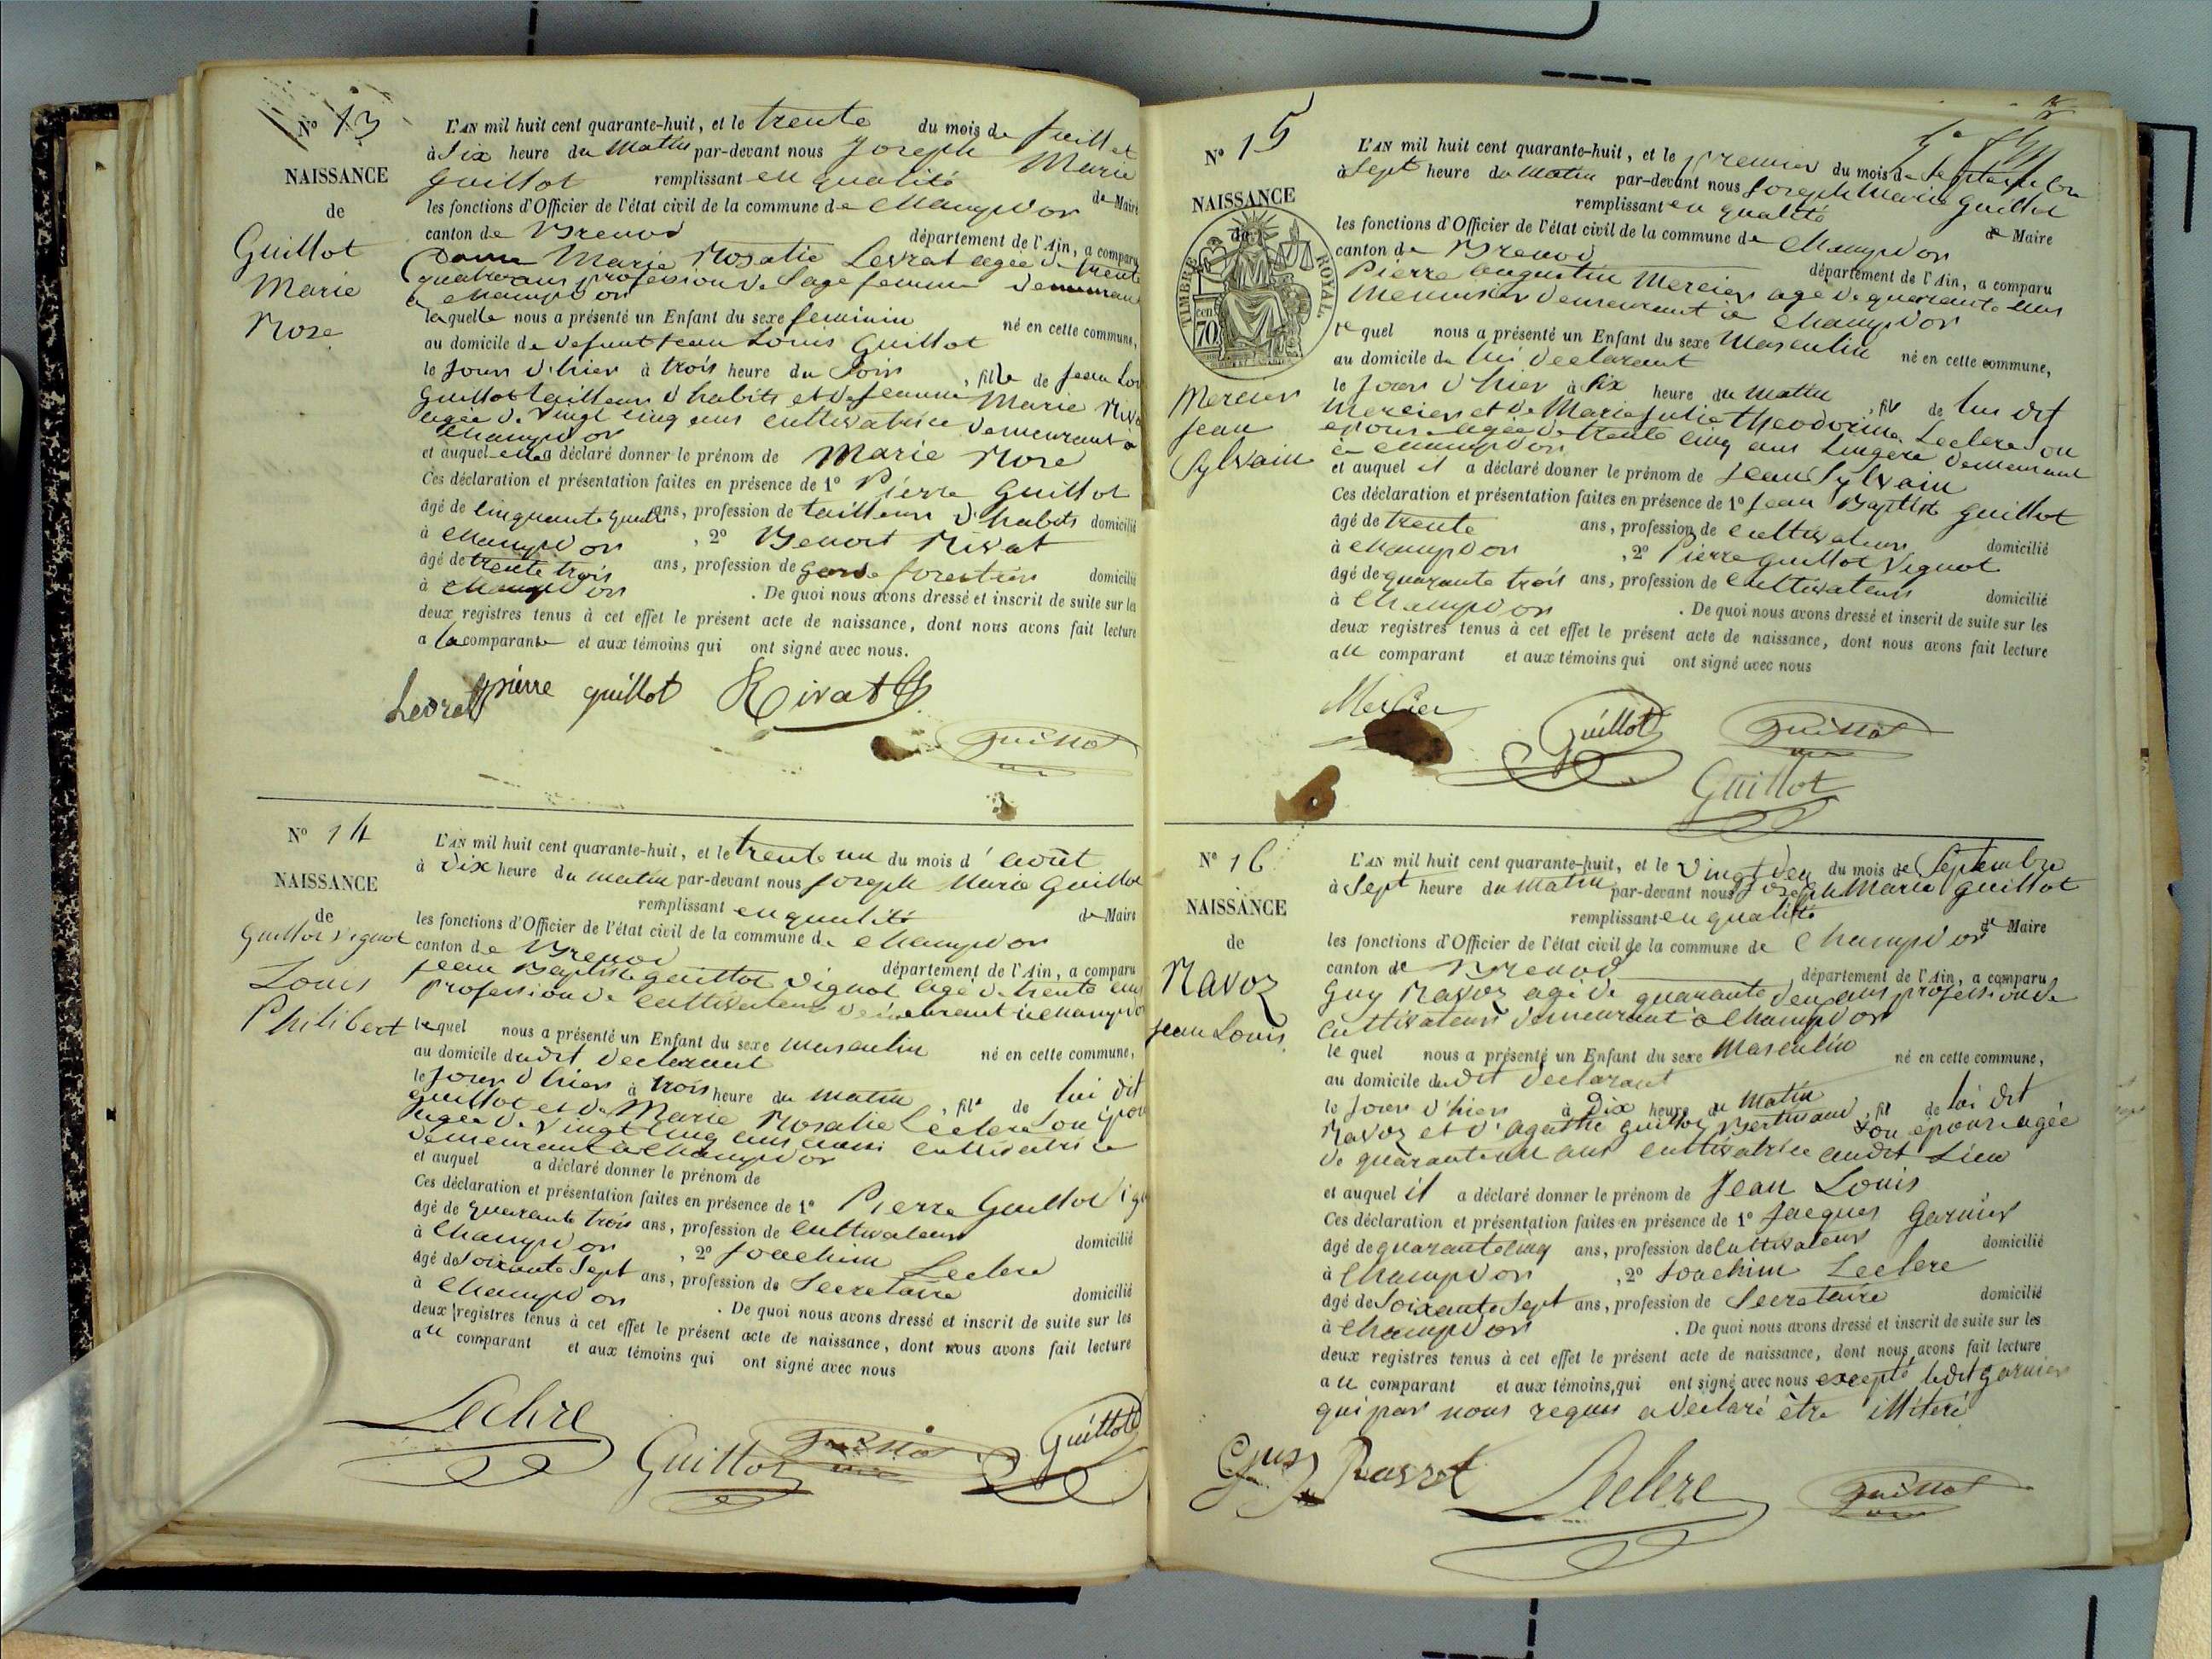 N° 13
NAISSANCE
de
Guillot
Marie
Rose
L'AN mil huit cent quarante-huit, et le trente du mois de Juillet
à Six heure du Matin par-devant nous Joseph Marie
Guillot remplissant en qualité de Maire
les fonctions d'Officier de l'état civil de la commune de Champdor
canton de Brenod département de l'Ain, a comparu
Dame Marie Rosalie Levrat agée de trente
quatre ans profession de Sage femme demeurant
à Champdor
laquelle nous a présenté un Enfant du sexe feminin né en cette commune,
au domicile de defunt Jean Louis Guillot
le Jour d'hier à trois heure du Soir, fille de Jean Lou
Guillot tailleur d'habits et de Jeanne Marie Riva
agée de Vingt cinq ans cultivatrice demeurant à
Champdor
et auquel elle a déclaré donner le prénom de Marie Rose
Ces déclaration et présentation faites en présence de 1° Pierre Guillot
âgé de cinquante quatre ans, profession de tailleur d'habits domicilié
à Champdor, 2° Benoit Rivat
âgé de trente trois ans, profession de garde forestier domicilié
à Champdor. De quoi nous avons dressé et inscrit de suite sur les
deux registres tenus à cet effet le présent acte de naissance, dont nous avons fait lecture
a la comparante et aux témoins qui ont signé avec nous.
Levrat pierre guillot Rivat
Guillot
N° 14
NAISSANCE
de
Guillot Vignot
Louis
Philibert
L'AN mil huit cent quarante-huit, et le trente un du mois d'août
à dix heure du matin par-devant nous Joseph Marie Guillot
remplissant en qualité de Maire
les fonctions d'Officier de l'état civil de la commune de Champdor
canton de Brenod département de l'Ain, a comparu
Jean Baptiste Guillot Vignot agé de trente ans
profession de cultivateur demeurant à Champdor
lequel nous a présenté un Enfant du sexe masculin né en cette commune,
au domicile dudit declarant
le Jour d'hier à trois heure du matin, fils de lui dit
Guillot et de Marie Rosalie Leclere son épou
agée de Vingt cinq ans aussi cultivatrice
demeurant à Champdor
et auquel a déclaré donner le prénom de
Ces déclaration et présentation faites en présence de 1° Pierre Guillot Vig
âgé de quarante trois ans, profession de cultivateur domicilié
à Champdor, 2° Joachim Leclere
âgé de Soixante Sept ans, profession de Secretaire domicilié
à Champdor. De quoi nous avons dressé et inscrit de suite sur les
deux registres tenus à cet effet le présent acte de naissance, dont nous avons fait lecture
au comparant et aux témoins qui ont signé avec nous
Leclere Guillot Guillot Guillot
N° 15
NAISSANCE
de
TIMBRE ROYAL
70 cen
Mercier
Jean
Sylvain
L'AN mil huit cent quarante-huit, et le premier du mois de Septembre
à Sept heure du Matin par-devant nous Joseph Marie Guillot
remplissant en qualité de Maire
les fonctions d'Officier de l'état civil de la commune de Champdor
canton de Brenod département de l'Ain, a comparu
Pierre Augustin Mercier agé de quarante ans
Menuisier demeurant à Champdor
lequel nous a présenté un Enfant du sexe Masculin né en cette commune,
au domicile de lui declarant
le Jour d'hier à Six heure du Matin, fils de lui dit
Mercier et de Marie Julie Theodorine Leclere son
epouse agée de trente cinq ans Lingere demeurant
à Champdor
et auquel il a déclaré donner le prénom de Jean Sylvain
Ces déclaration et présentation faites en présence de 1° Jean Baptiste Guillot
âgé de trente ans, profession de cultivateur domicilié
à Champdor, 2° Pierre Guillot Vignot
âgé de quarante trois ans, profession de Cultivateur domicilié
à Champdor. De quoi nous avons dressé et inscrit de suite sur les
deux registres tenus à cet effet le présent acte de naissance, dont nous avons fait lecture
au comparant et aux témoins qui ont signé avec nous
Mercier Guillot Guillot
Guillot
N° 16
NAISSANCE
de
Ravoz
Jean Louis
L'AN mil huit cent quarante-huit, et le Vingt deu du mois de Septembre
à Sept heure du Matin par-devant nous Joseph Marie Guillot
remplissant en qualité de Maire
les fonctions d'Officier de l'état civil de la commune de Champdor
canton de Brenod département de l'Ain, a comparu
Guy Ravoz agé de quarante deux ans profession de
cultivateur demeurant à Champdor
lequel nous a présenté un Enfant du sexe Masculin né en cette commune,
au domicile dudit declarant
le Jour d'hier à Dix heure du Matin, fils de lui dit
Ravoz et d'Agathe Guillot Bertrand son epouse agée
de quarante un ans cultivatrice audit Lieu
et auquel il a déclaré donner le prénom de Jean Louis
Ces déclaration et présentation faites en présence de 1° Jacques Garnier
âgé de quarante cinq ans, profession de Cultivateur domicilié
à Champdor, 2° Joachim Leclere
âgé de Soixante Sept ans, profession de Secretaire domicilié
à Champdor. De quoi nous avons dressé et inscrit de suite sur les
deux registres tenus à cet effet le présent acte de naissance, dont nous avons fait lecture
au comparant et aux témoins, qui ont signé avec nous excepté ledit Garnier
qui par nous requis a declaré être illiteré
Guy Ravot Leclere Guillot